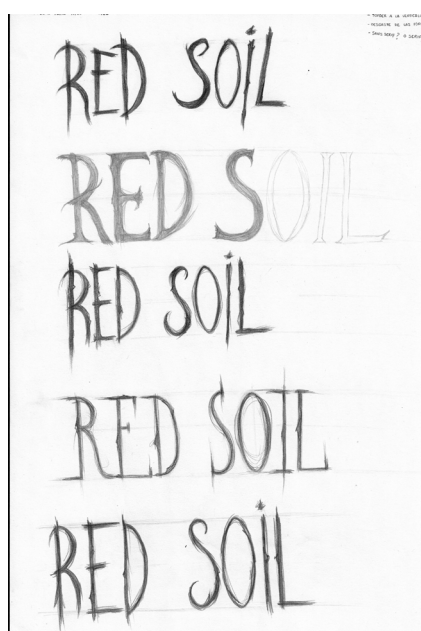 RED SOiL
RED SOIL
RED SOiL
RED SOIL
RED SOiL